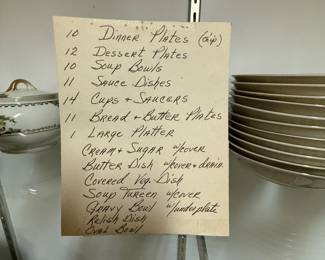 10 Dinner Plates (chip)
12 Dessert Plates
10 Soup Bowls
11 Sauce Dishes
14 Cups + Saucers
11 Bread + Butter Plates
1 Large Platter
Cream + Sugar w/cover
Butter Dish w/cover + drain
Covered Veg. Dish
Soup Tureen w/cover
Gravy Bowl w/underplate
Relish Dish
Oval Bowl